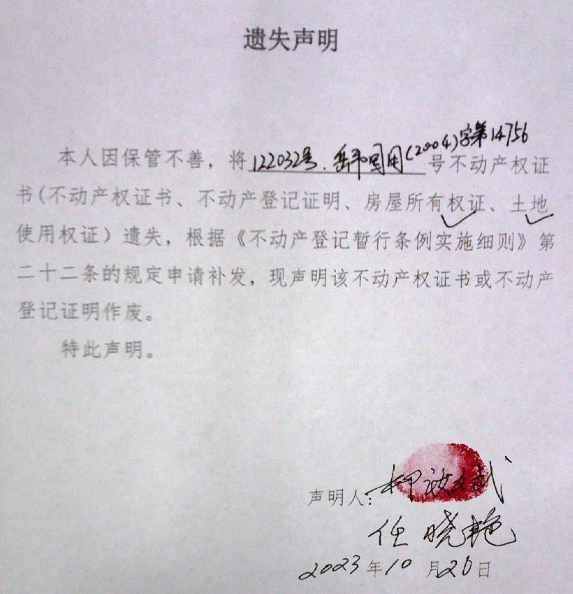 遗失声明
本人因保管不善，将122032号.岳市国用(2004)字第14756号不动产权证
书(不动产权证书、不动产登记证明、房屋所有权证、土地
使用权证）遗失，根据《不动产登记暂行条例实施细则》第
二十二条的规定申请补发，现声明该不动产权证书或不动产
登记证明作废。
特此声明。
声明人：柳
任晓艳
2023年10月26日